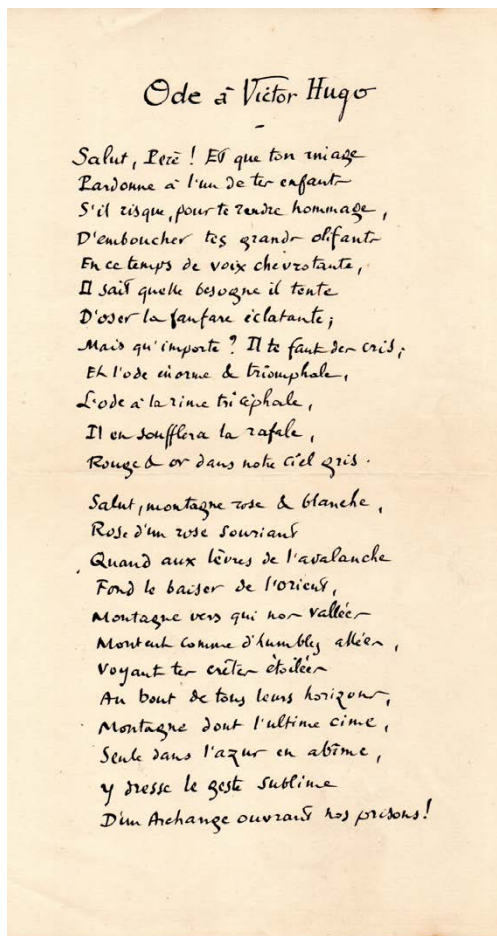 Ode à Victor Hugo
Salut, Père ! Et que ton image
Pardonne à l'un de tes enfants
S'il risque, pour te rendre hommage,
D'emboucher tes grands olifants
En ce temps de voix chevrotante,
Il sait quelle besogne il tente
D'oser la fanfare éclatante ;
Mais qu'importe ? Il te faut des cris ;
Et l'ode énorme & triomphale,
L'ode à la rime tricéphale,
Il en soufflera la rafale,
Rouge & or dans notre ciel gris.
Salut, montagne rose & blanche,
Rose d'un rose souriant
Quand aux lèvres de l'avalanche
Fond le baiser de l'orient,
Montagne vers qui nos vallées
Montent comme d'humbles allées,
Voyant tes crêtes étoilées
Au bout de tous leurs horizons,
Montagne dont l'ultime cime,
Seule dans l'azur en abîme,
y dresse le geste sublime
D'un Archange ouvrant nos prisons !